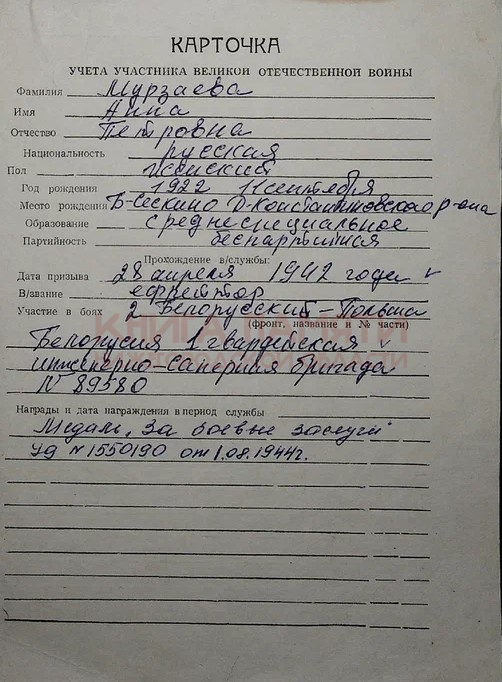 КАРТОЧКА
УЧЕТА УЧАСТНИКА ВЕЛИКОЙ ОТЕЧЕСТВЕННОЙ ВОЙНЫ
Фамилия Мурзаева
Имя Анна
Отчество Петровна
Национальность русская
Пол женский
Год рождения 1922 11 сентября
Место рождения Б-Сескино Д-Константиновского р-она
Образование среднеспециальное
Партийность беспартийная
Прохождение в/службы:
Дата призыва 28 апреля 1942 года
В/звание ефрейтор
Участие в боях 2 Белорусский - Польша
(фронт, название и № части)
Белорусия 1 гвардейская
инженерно-саперная бригада
N 89580
Награды и дата награждения в период службы
Медаль "За боевые заслуги"
уд N 1550190 от 1.08.1944г.